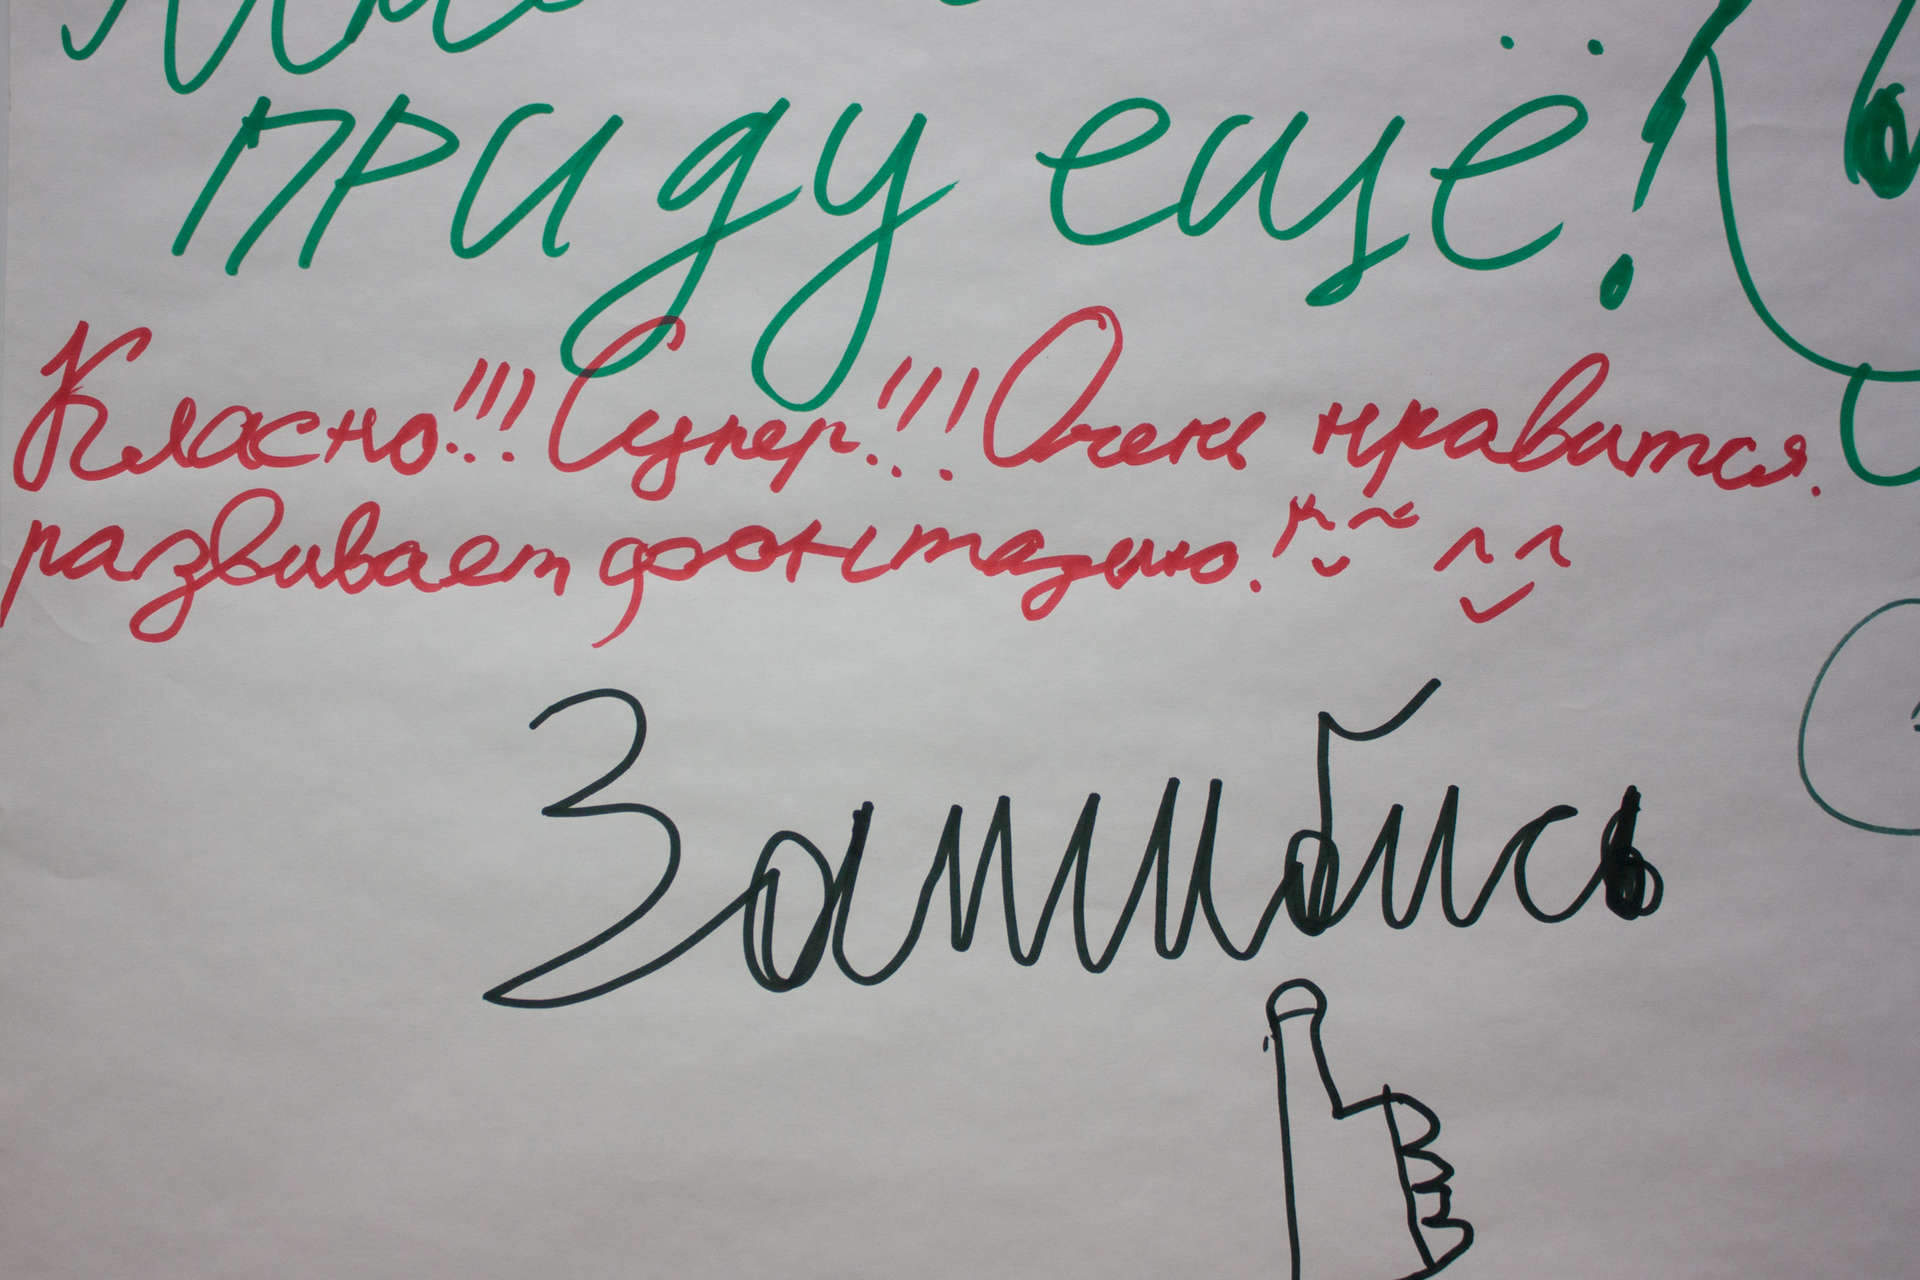 приду ещё!
Класно!!! Супер!!! Очень нравится.
развивает фонтазию!
Зашибись